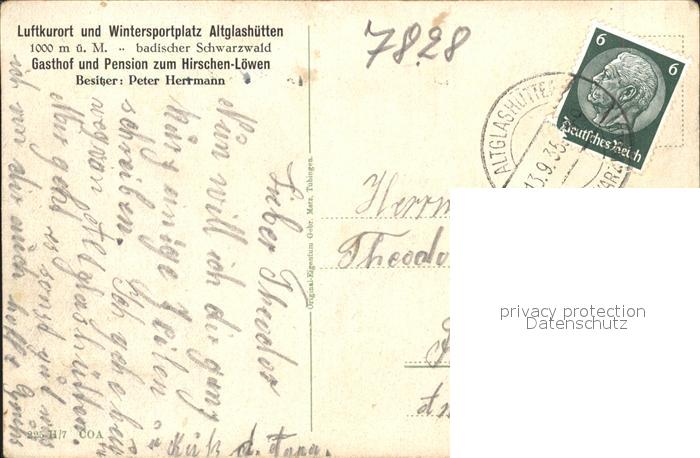 Luftkurort und Wintersportplatz Altglashütten
1000 m ü. M. -- badischer Schwarzwald
Gasthof und Pension zum Hirschen-Löwen
Besitzer: Peter Herrmann
7828
6 6
Deutsches Reich
ALTGLASHÜTTE
13.9.35
WARZ
Original-Eigentum Gebr. Metz, Tübingen.
Lieber Theodor
Nun will ich dir ganz
kurz einige Zeilen
schreiben. Ich gehe heu
weg von Altglashütten.
geht es sonst gut
ich von dir auch hoffe
Gruß d.
Herrn
Theodo
225 H/7 COA
privacy protection
Datenschutz